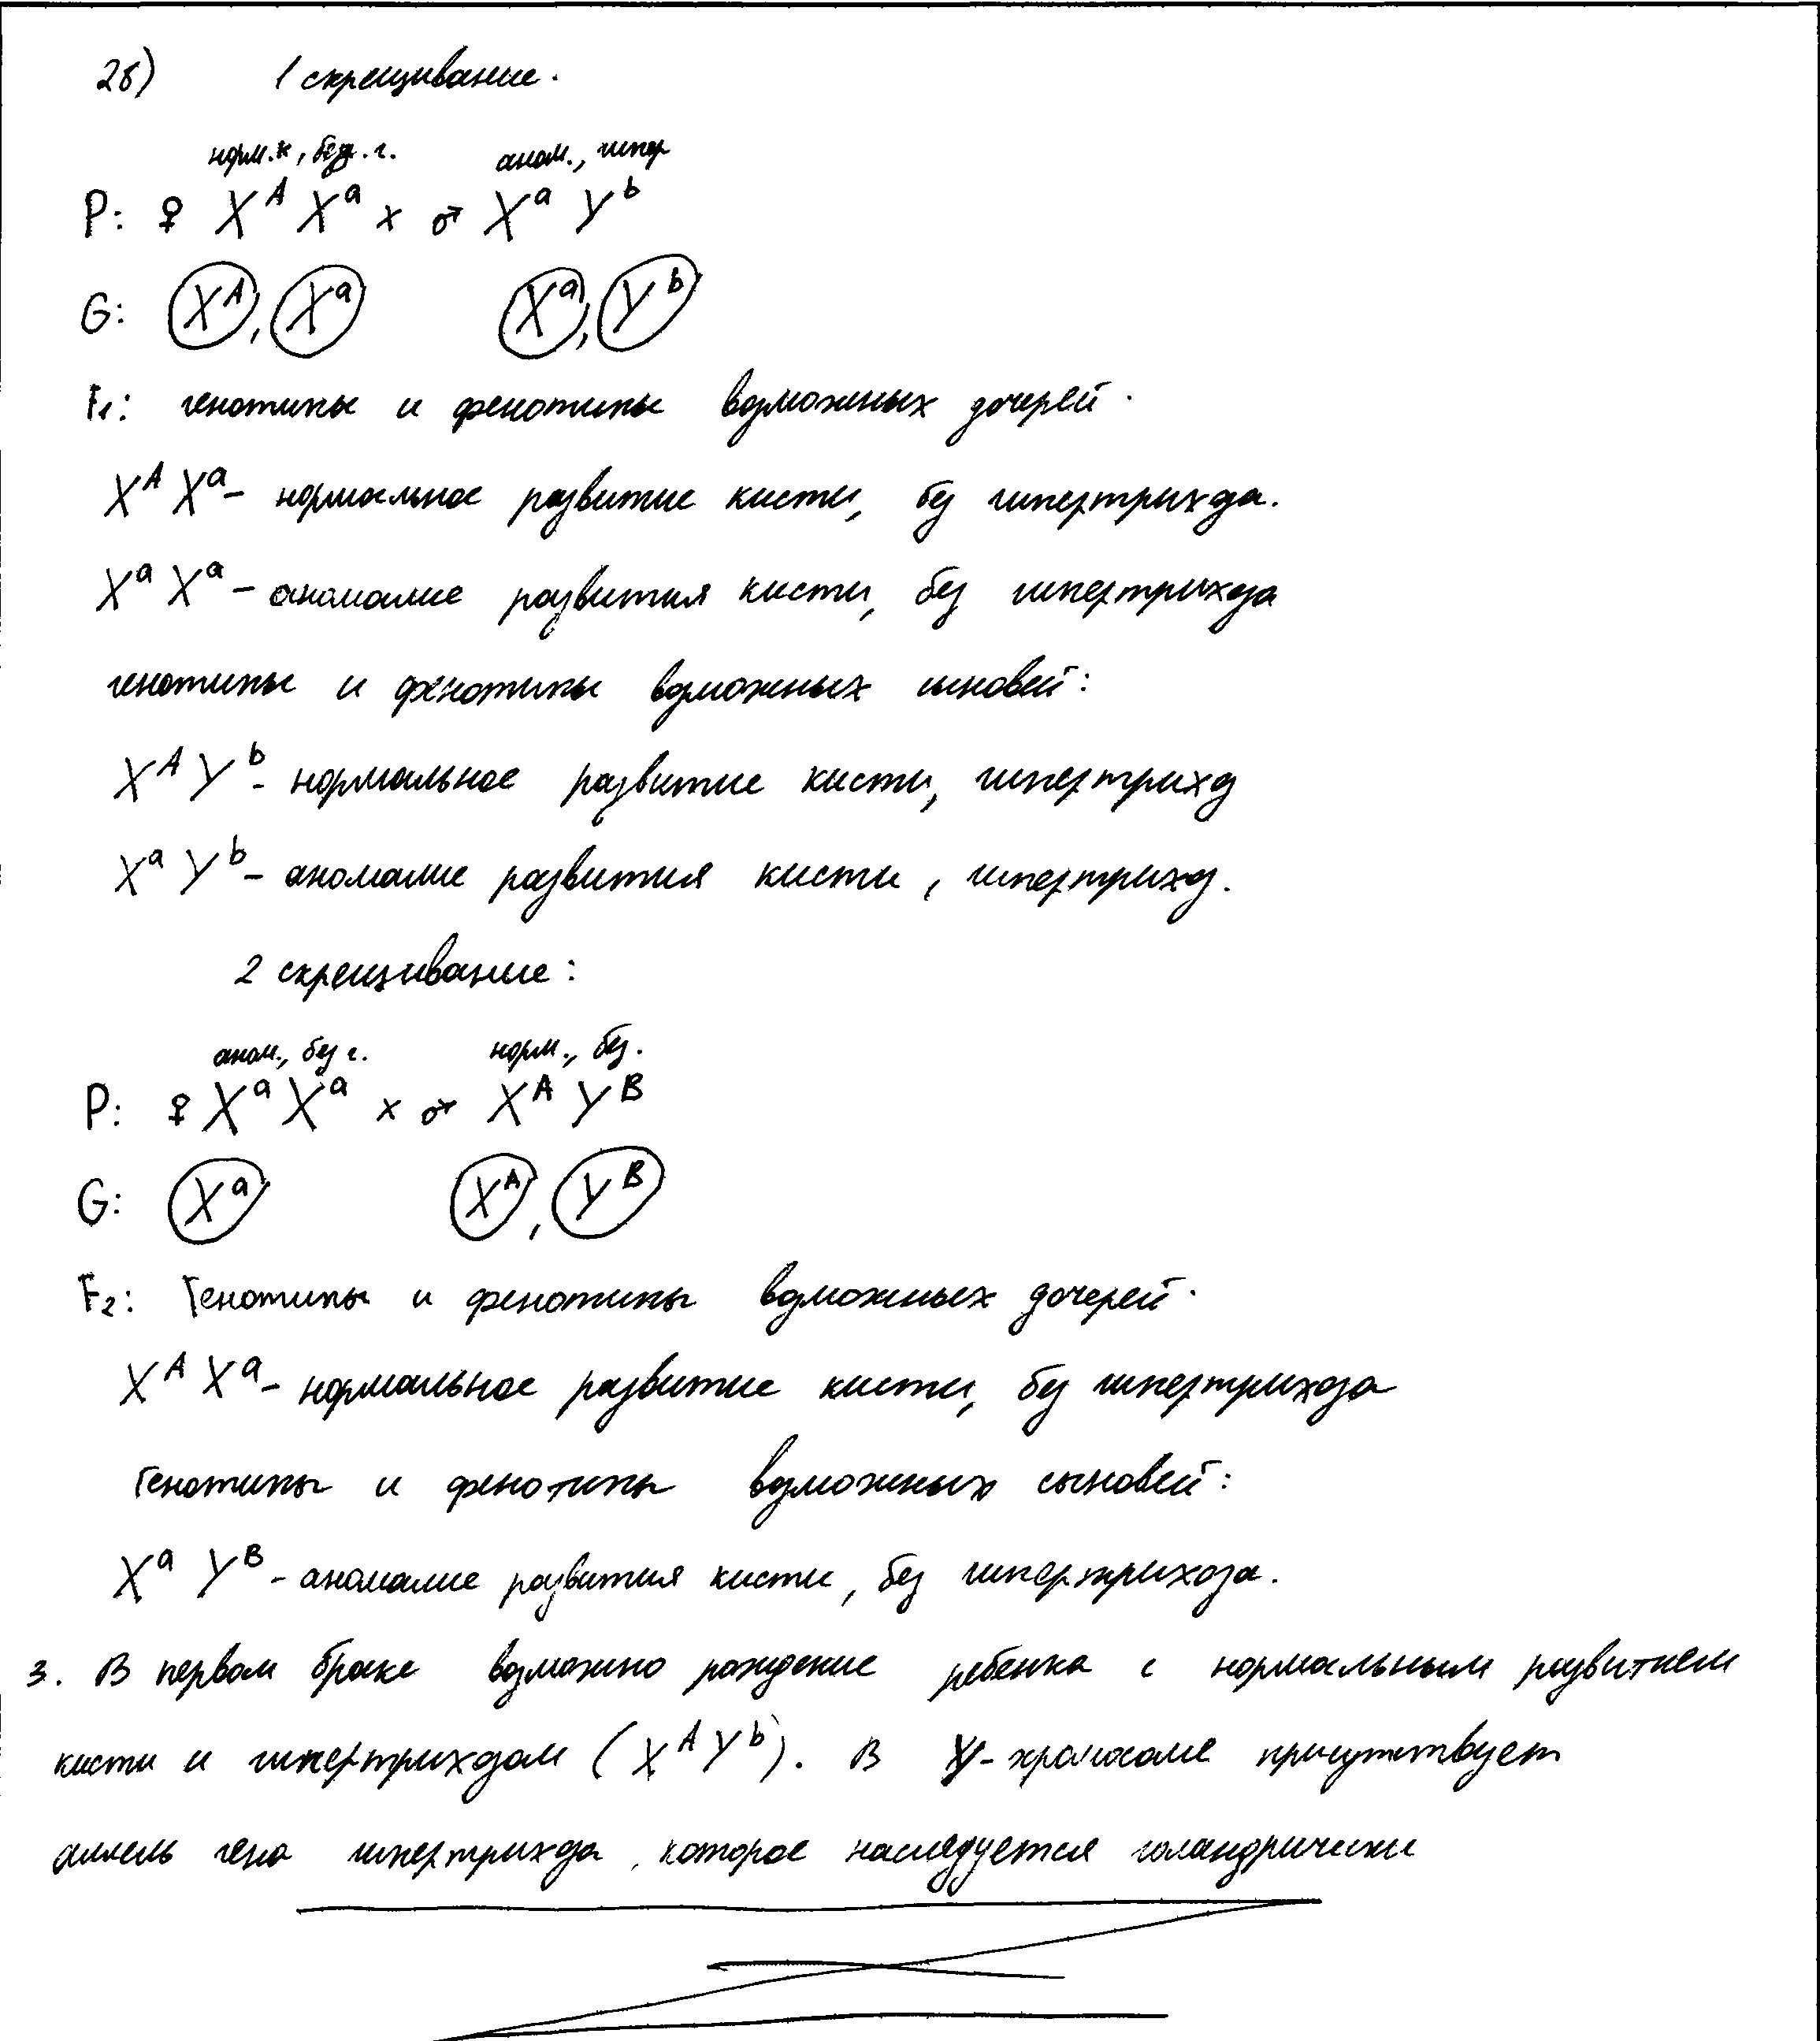 28) 1 скрещивание.
норм.к, без. г. аном., гипер
P: ♀ X^A X^a x ♂ X^a Y^b
G: X^A, X^a X^a, Y^b
F1: генотипы и фенотипы возможных дочерей.
X^A X^a - нормальное развитие кисти, без гипертрихоза.
X^a X^a - аномалие развития кисти, без гипертрихоза
генотипы и фенотипы возможных сыновей:
X^A Y^b - нормальное развитие кисти, гипертрихоз
X^a Y^b - аномалие развития кисти, гипертрихоз.
2 скрещивание:
аном., без г. норм., без.
P: ♀ X^a X^a x ♂ X^A Y^B
G: X^a X^A, Y^B
F2: Генотипы и фенотипы возможных дочерей.
X^A X^a - нормальное развитие кисти, без гипертрихоза
Генотипы и фенотипы возможных сыновей:
X^a Y^B - аномалие развития кисти, без гипертрихоза.
3. В первом браке возможно рождение ребенка с нормальным развитием
кисти и гипертрихозом (X^A Y^b). В Y-хромосоме присутствует
аллель гена гипертрихоза, которое наследуется голандрически